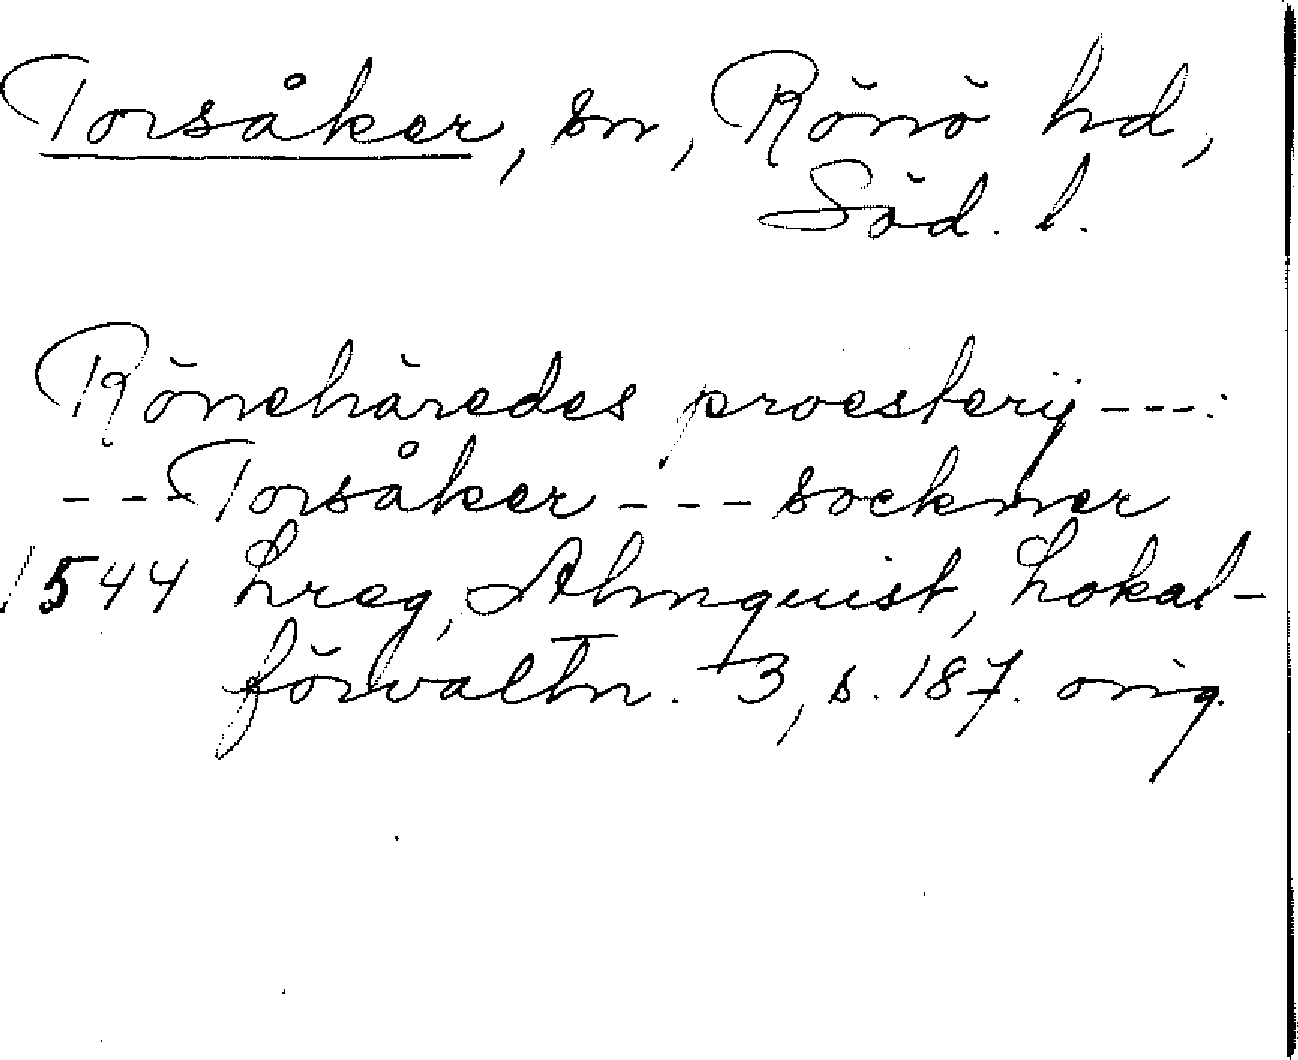 Torsåker, sn, Rönö hd,
Söd. l.
Rönehäredes proesterij ---:
--- Torsåker --- socknner
1544 Lreg, Almquist, Lokal-
förvaltn. 3, s. 187. orig.